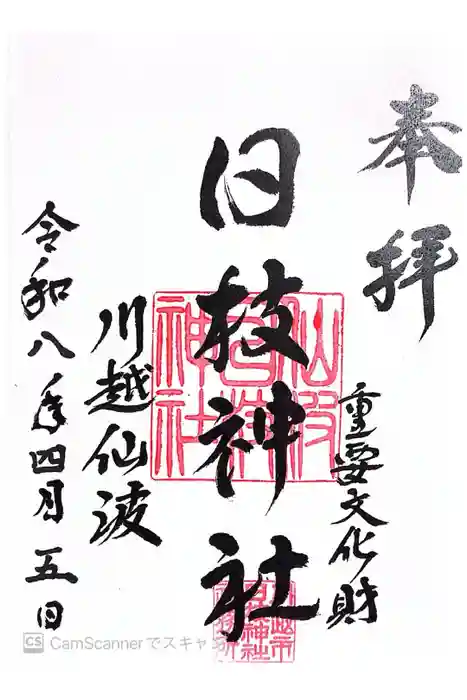 奉拝
重要文化財
日枝神社
川越仙波
令和八年四月五日
仙波
日枝
神社
CS CamScannerでスキャン